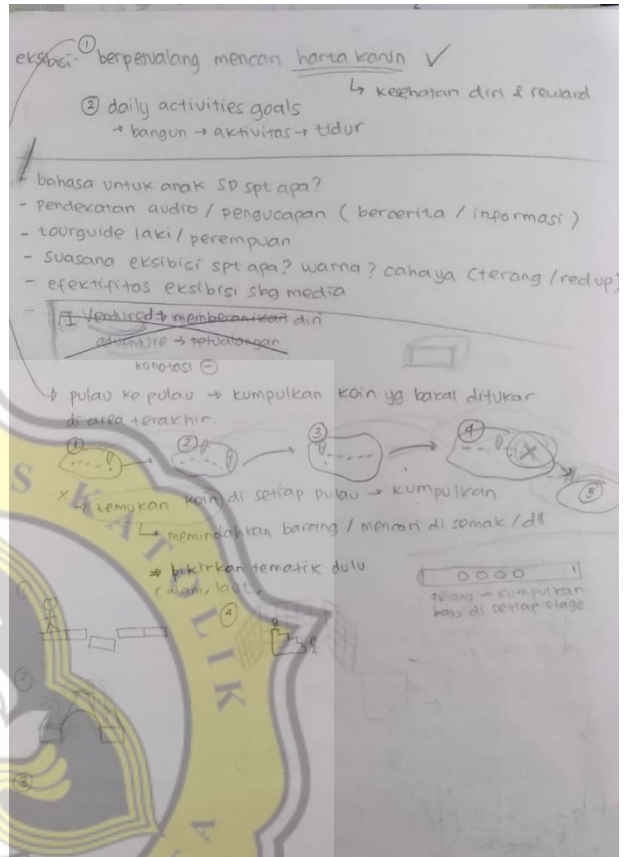 eksibisi - ① berpetualang mencari harta karun ✓
↳ kesehatan diri & reward
② daily activities goals
→ bangun → aktivitas → tidur
- bahasa untuk anak SD spt apa?
- pendekatan audio / pengucapan ( bercerita / informasi )
- tourguide laki / perempuan
- suasana eksibisi spt apa? warna? cahaya (terang / redup)
- efektifitas eksibisi sbg media
- I Ventured → memberanikan diri
adventure → petualangan
konotasi ⊖
pulau ke pulau → kumpulkan koin yg bakal ditukar
di area terakhir.
① ② ③ ④ X ⑤
X → temukan koin di setiap pulau → kumpulkan
↳ memindahkan barang / mencari di semak / dll
→ pikirkan tematik dulu
(alam, laut,
gelang → kumpulkan
batu di setiap stage
① ④
②
③
S KATOLIK
A